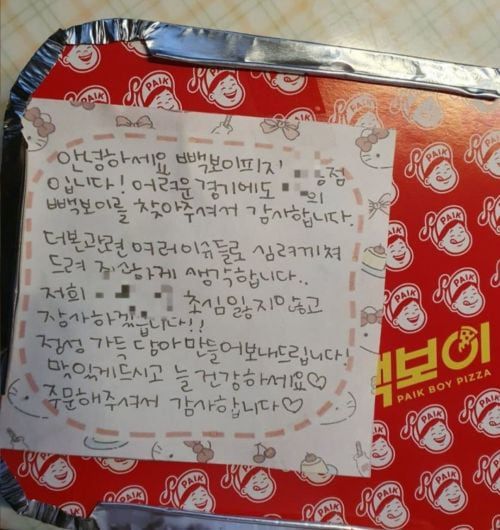 안녕하세요 빽보이피자 점
입니다! 어려운 경기에도 의
빽보이를 찾아주셔서 감사합니다.
더본관련 여러이슈들로 심려끼쳐
드려 죄송하게 생각합니다..
저희 초심 잃지않고
장사하겠습니다!!
정성 가득 담아 만들어보내드립니다!
맛있게드시고 늘 건강하세요♡
주문해주셔서 감사합니다♡
빽보이
PAIK BOY PIZZA
PAIK